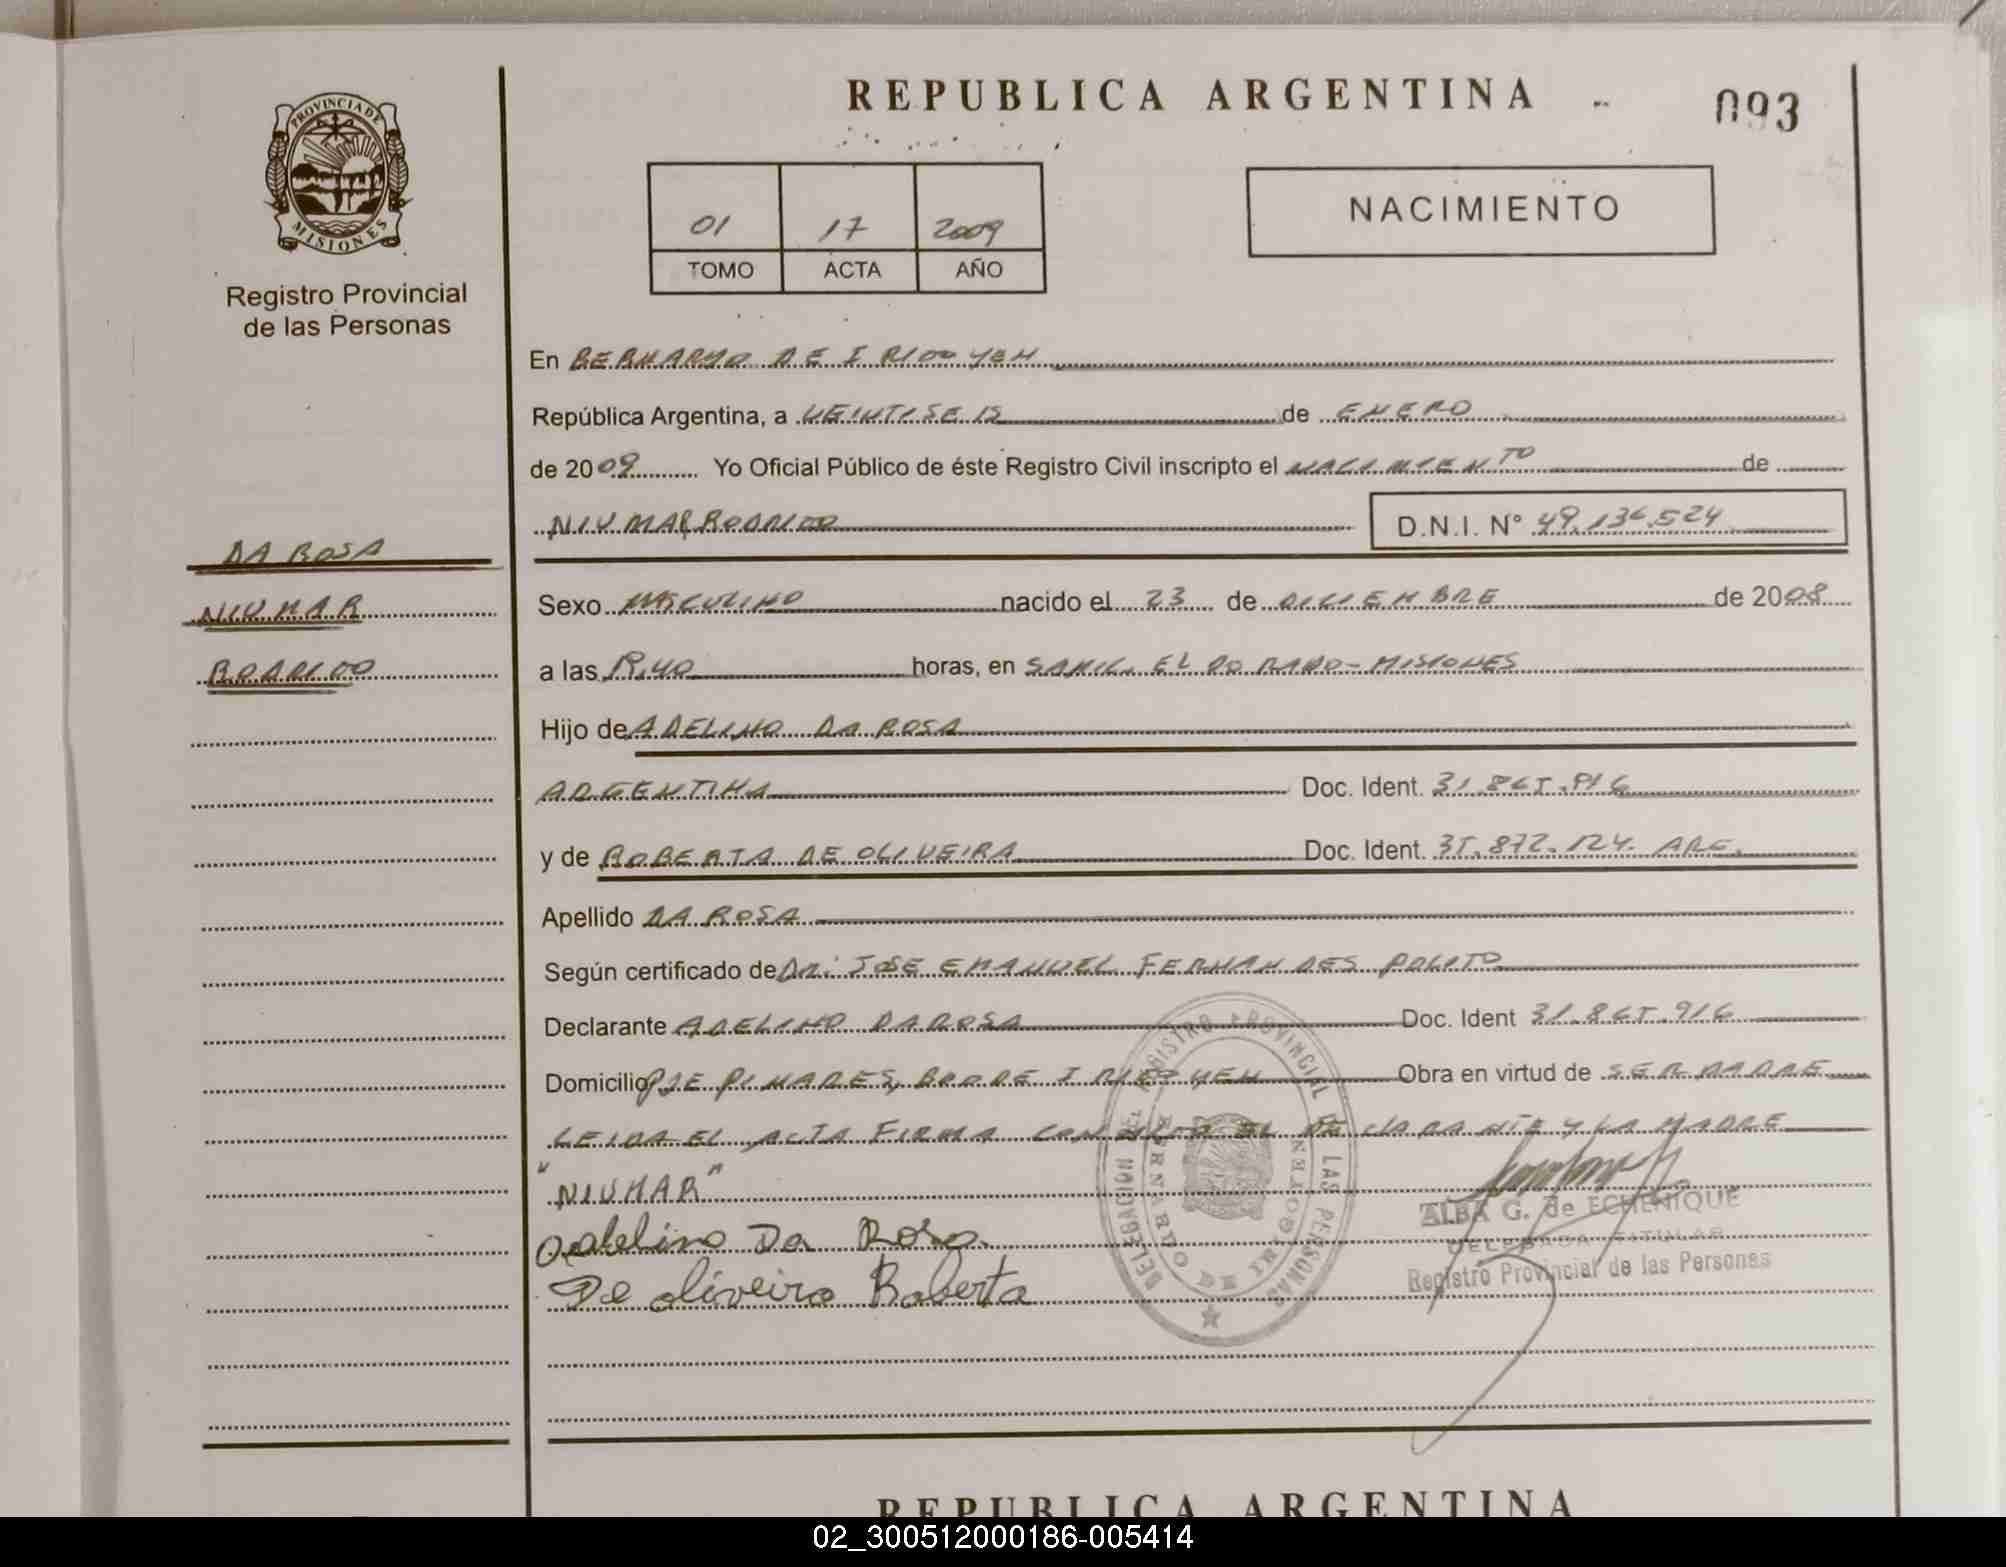 REPUBLICA ARGENTINA
093
PROVINCIA DE
MISIONES
Registro Provincial
de las Personas
01 17 2009
TOMO ACTA AÑO
NACIMIENTO
En BERNARDO DE IRIGOYEN
República Argentina, a VEINTISEIS de ENERO
de 2009 Yo Oficial Público de éste Registro Civil inscripto el NACIMIENTO de
NIUMAR RODRIGO D.N.I. N° 49.136.524
DA ROSA
NIUMAR
RODRIGO
Sexo MASCULINO nacido el 23 de DICIEMBRE de 2008
a las 19,40 horas, en SAMIC. ELDORADO - MISIONES
Hijo de ADELINO DA ROSA
ARGENTINA Doc. Ident. 31.865.916
y de ROBERTA DE OLIVEIRA Doc. Ident. 35.872.124. ARG.
Apellido DA ROSA
Según certificado de Dr. JOSE EMANUEL FERNANDES POLITO
Declarante ADELINO DA ROSA Doc. Ident 31.865.916
Domicilio PJE PINARES, BRDO DE IRIGOYEN Obra en virtud de SER PADRE
LEIDA EL ACTA FIRMA CONMIGO EL DECLARANTE Y LA MADRE
"NIUMAR"
Adelino Da Rosa
De oliveira Roberta
DELEGACION DEL REGISTRO PROVINCIAL DE LAS PERSONAS
BERNARDO DE IRIGOYEN
ALBA G. de ECHENIQUE
DELEGADA TITULAR
Registro Provincial de las Personas
REPUBLICA ARGENTINA
02_300512000186-005414